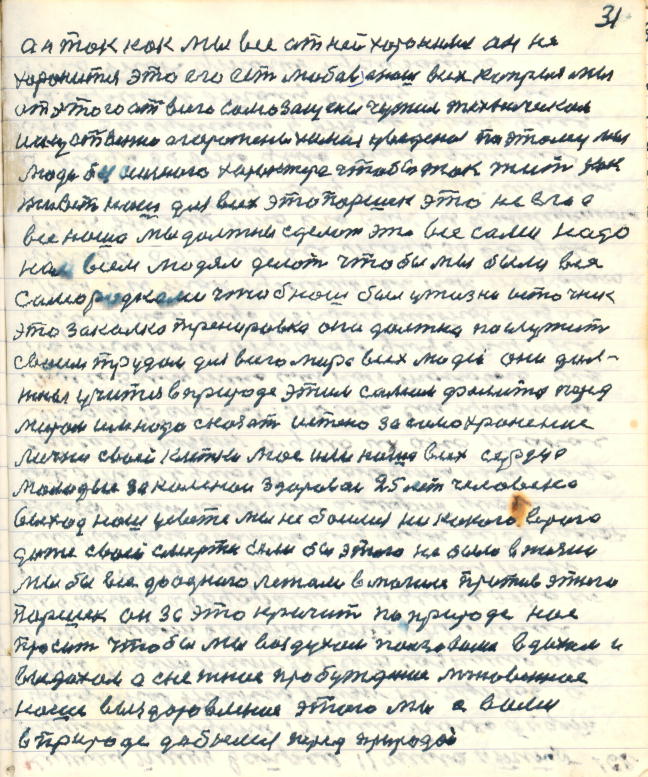 31
а н так как мы все от ней хороним а н ня
хоронится это его есть любав наш всех мы
от этого от всего само защиены чужил техническая
искуственно огорожены уведена поэтому мы
люди б иного характера чтобы так жить как
живет наш для всех это паршек это не его а
все наша мы должны сделат эта все сами надо
нам всем людям делот чтобы мы были вся
самородками чтоб наш был ужизни источник
это закалка тренировка она должна паслужить
своим трудом для всего мира всех людей они дол-
жны учится в природе этим самим перед
миром им надо сказать истено за само хронение
лично своей клетки мое или наша всех сердца
молодые закаленои здоровая 25 лет человека
выход наш увете мы не боимся ни какого врага
даже своей смерти если бы этого не было в жизни
мы бы все до одного лежали в могиле против этого
паршек он за это кричит по природе нас
просит чтобы мы воздухом ползовали вдохом и
выдохом а снежное пробуждение мгновенное
наша выздоровление этого мы с вами
в природе добьемся перед природой